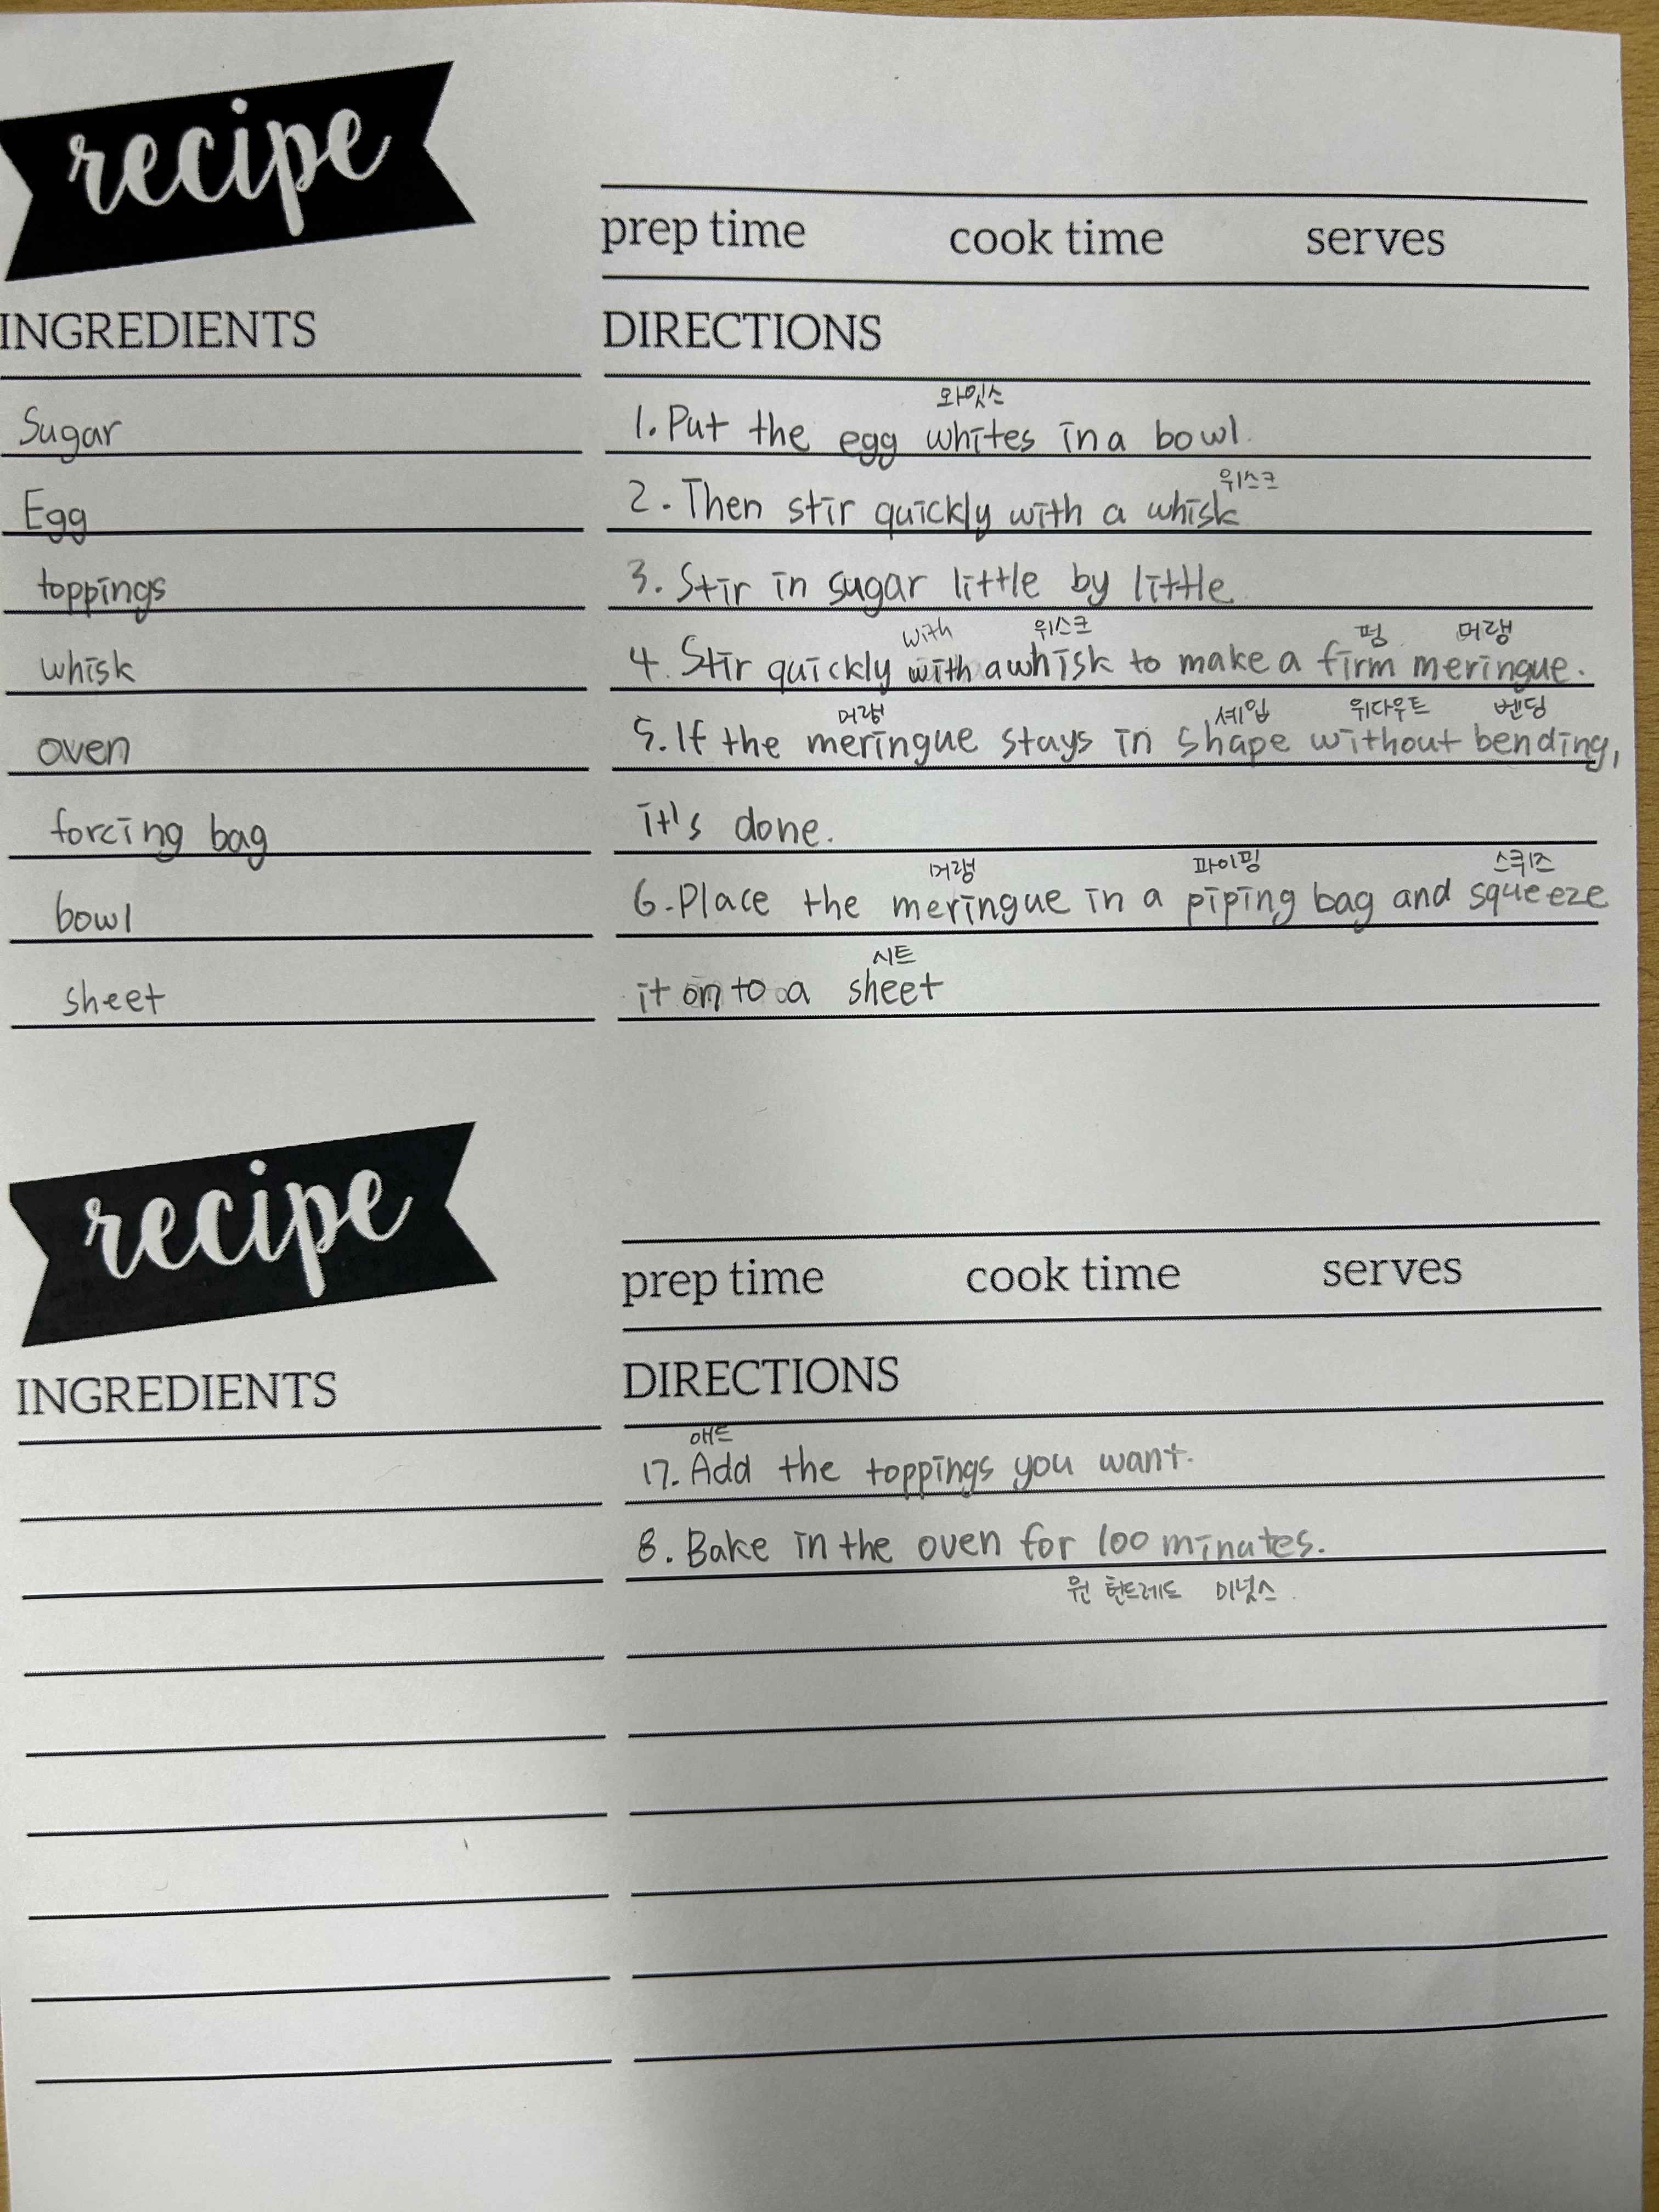 recipe
prep time cook time serves
INGREDIENTS
DIRECTIONS
Sugar
Egg
toppings
whisk
oven
forcing bag
bowl
sheet
와잇스
1. Put the egg whites in a bowl.
위스크
2. Then stir quickly with a whisk
3. Stir in sugar little by little
with 위스크 펌 머랭
4. Stir quickly with a whisk to make a firm meringue.
머랭 셰입 위다우트 벤딩
5. If the meringue stays in shape without bending,
it's done.
머랭 파이핑 스퀴즈
6. Place the meringue in a piping bag and squeeze
시트
it on to a sheet
recipe
prep time cook time serves
INGREDIENTS
DIRECTIONS
애드
17. Add the toppings you want.
8. Bake in the oven for 100 minutes.
원 헌드레드 미닛스